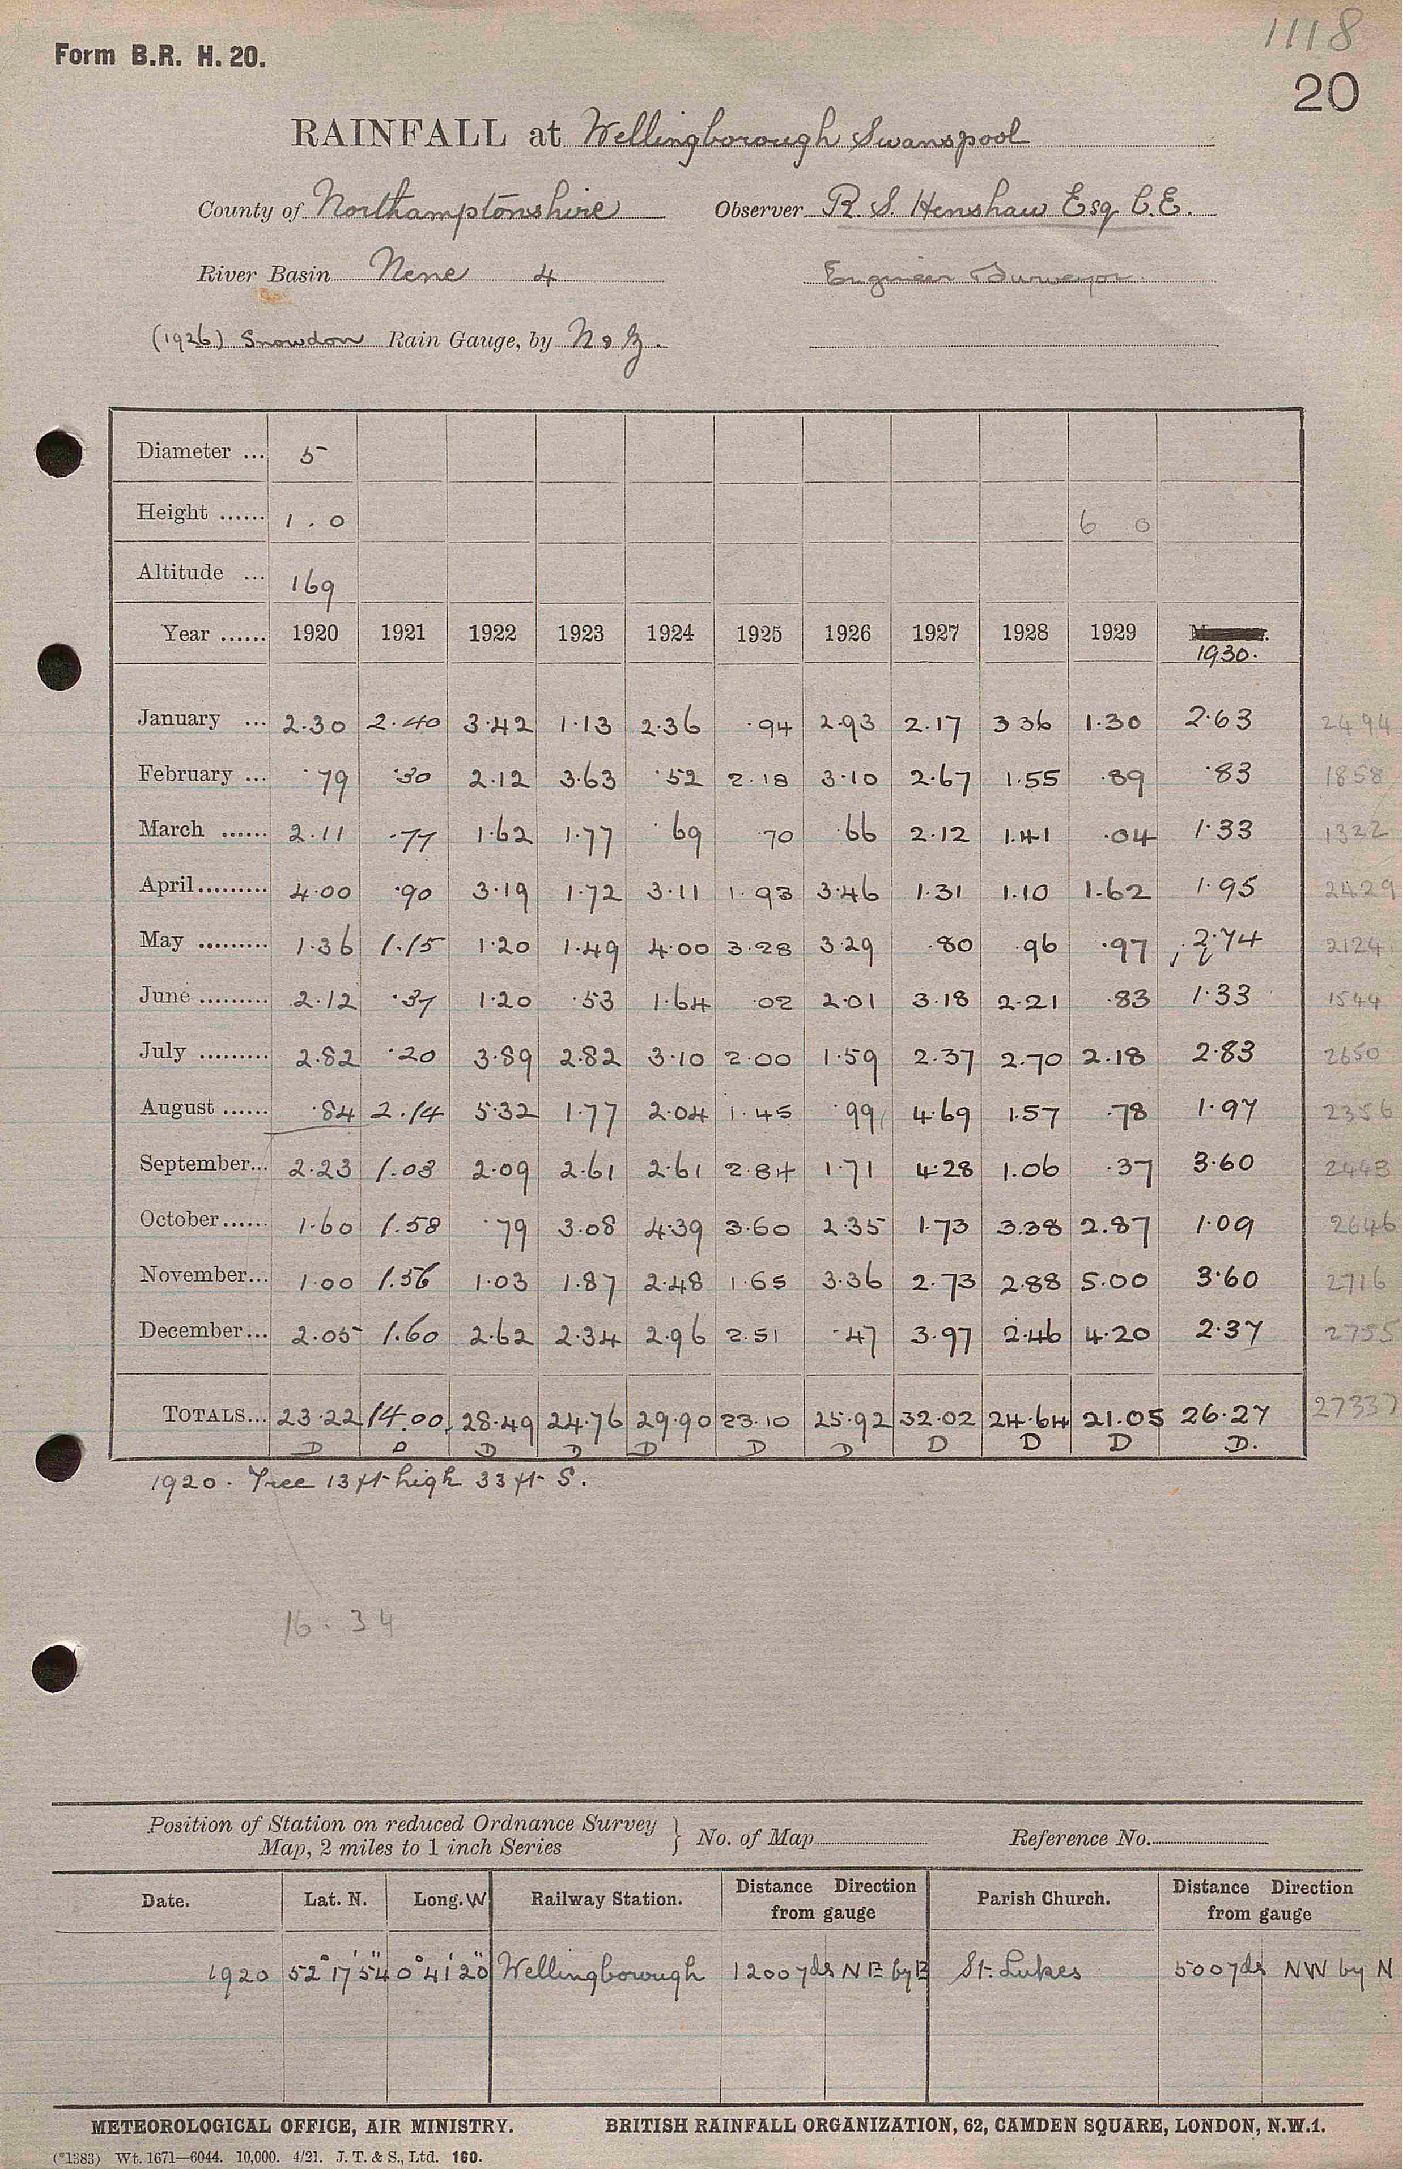 1118
Form B.R. H. 20.
20
RAINFALL at Wellingborough Swanspool
County of Northamptonshire Observer R. S. Henshaw Esq C.E.
River Basin Nene 4 Engineer Surveyor.
(1926) Snowdon Rain Gauge, by N & Z.
Diameter ... 5
Height ...... 1 . 0 6 0
Altitude ... 169
Year ...... 1920 1921 1922 1923 1924 1925 1926 1927 1928 1929
1930.
January ... 2.30 2.40 3.42 1.13 2.36 .94 2.93 2.17 3 36 1.30 2.63 2494
February ... .79 .30 2.12 3.63 .52 2.18 3.10 2.67 1.55 .89 .83 1858
March ...... 2.11 .77 1.62 1.77 .69 .70 .66 2.12 1.41 .04 1.33 1322
April ......... 4.00 .90 3.19 1.72 3.11 1.93 3.46 1.31 1.10 1.62 1.95 2429
May ......... 1.36 1.15 1.20 1.49 4.00 3.28 3.29 .80 .96 .97 2.74 2124
June ......... 2.12 .37 1.20 .53 1.64 .02 2.01 3.18 2.21 .83 1.33 1544
July ......... 2.82 .20 3.89 2.82 3.10 2.00 1.59 2.37 2.70 2.18 2.83 2650
August ...... .84 2.14 5.32 1.77 2.04 1.45 .99 4.69 1.57 .78 1.97 2356
September... 2.23 1.03 2.09 2.61 2.61 2.84 1.71 4.28 1.06 .37 3.60 2443
October...... 1.60 1.58 .79 3.08 4.39 3.60 2.35 1.73 3.38 2.87 1.09 2646
November... 1.00 1.56 1.03 1.87 2.48 1.65 3.36 2.73 2.88 5.00 3.60 2716
December... 2.05 1.60 2.62 2.34 2.96 2.51 .47 3.97 2.46 4.20 2.37 2755
TOTALS... 23.22 14.00 28.49 24.76 29.90 23.10 25.92 32.02 24.64 21.05 26.27 27337
D D D D D D D D D D D.
1920. Tree 13 ft high 33 ft S.
16.34
Position of Station on reduced Ordnance Survey
Map, 2 miles to 1 inch Series } No. of Map Reference No.
Date. Lat. N. Long. W Railway Station. Distance Direction from gauge Parish Church. Distance Direction from gauge
1920 52° 17' 54" 0° 41' 20" Wellingborough 1200 yds NE by E St. Lukes 500 yds NW by N
METEOROLOGICAL OFFICE, AIR MINISTRY. BRITISH RAINFALL ORGANIZATION, 62, CAMDEN SQUARE, LONDON, N.W.1.
(*1383) Wt. 1671—6044. 10,000. 4/21. J. T. & S., Ltd. 160.